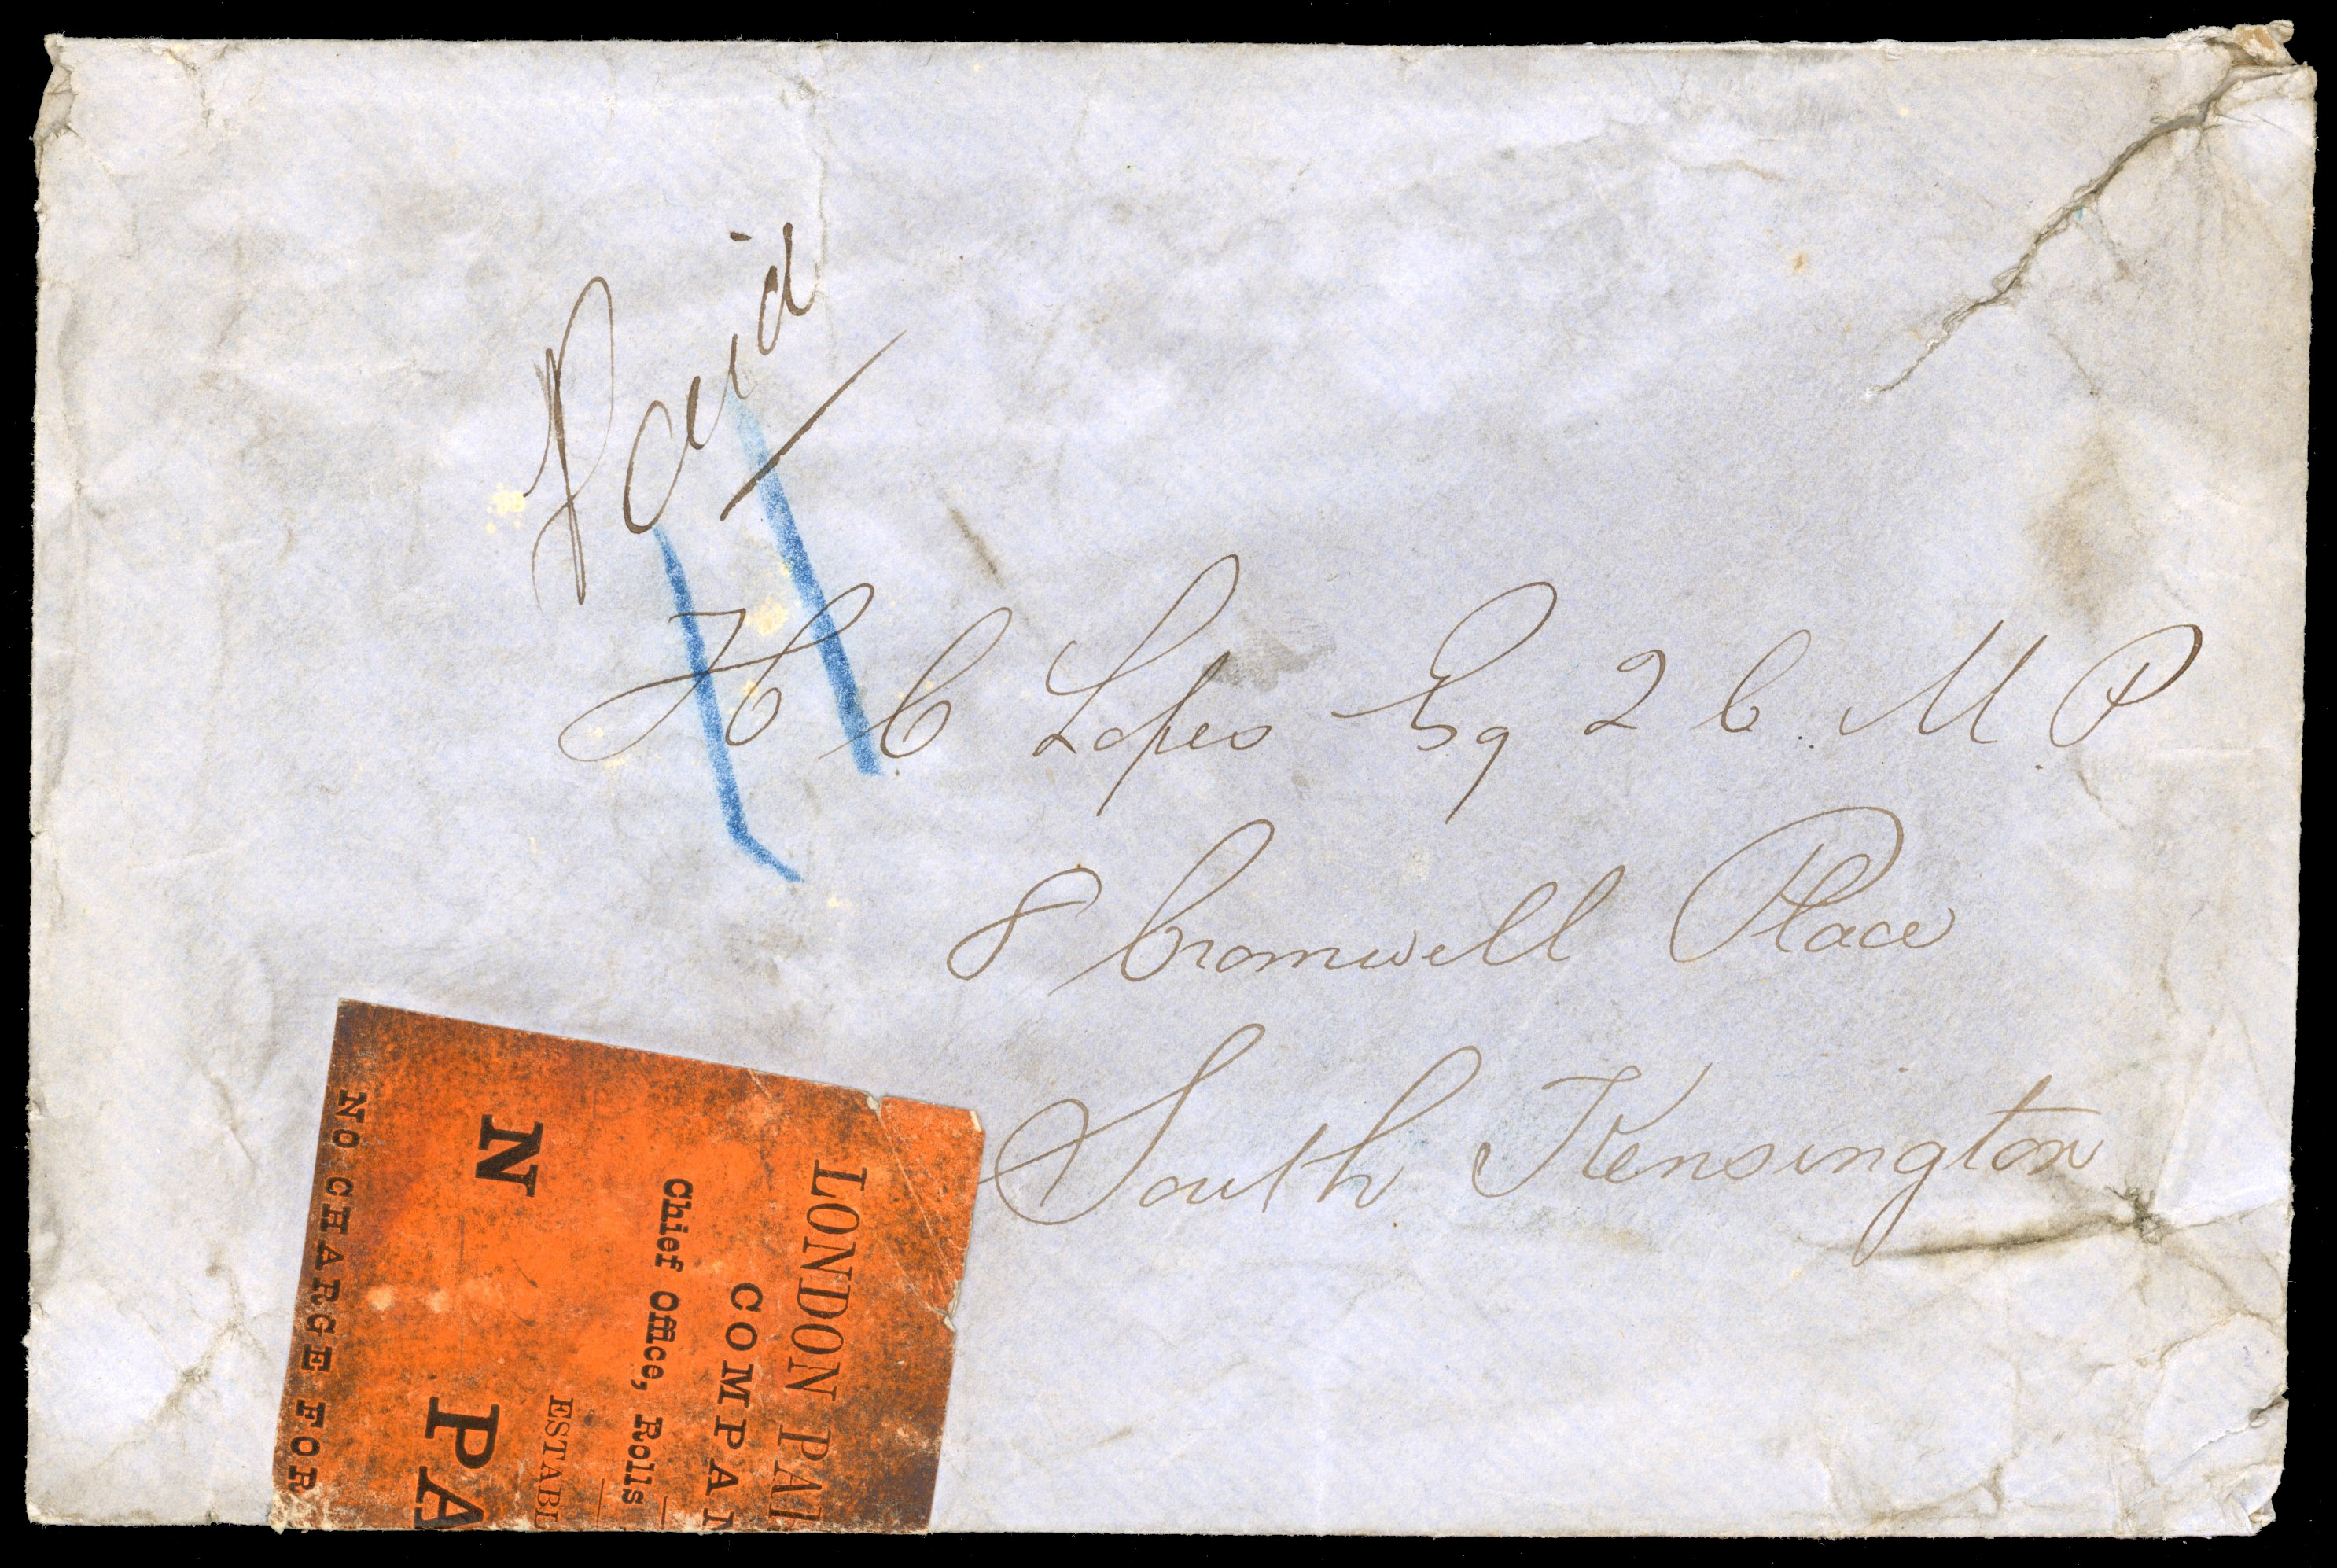 Paid
H C Lopes Esq 2 C. M. P
8 Cromwell Place
South Kensington
LONDON PAR
COMPAN
Chief Office, Rolls
ESTABL
N PA
NO CHARGE FOR